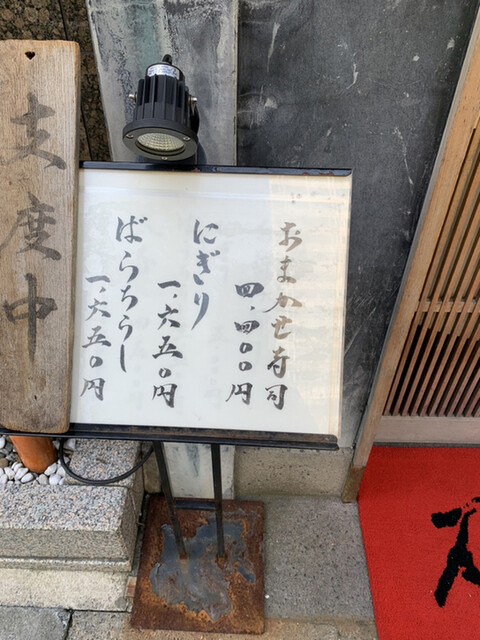 おまかせ寿司
四.四〇〇円
にぎり
一.六五〇円
ばらちらし
一.六五〇円
支度中